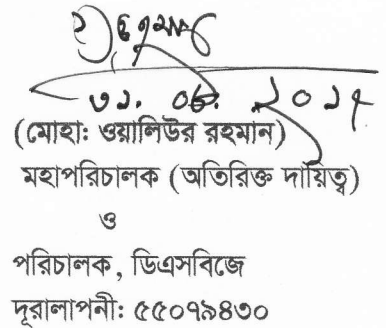 ৩১. ০৮. ২০১৭
(মোহাঃ ওয়ালিউর রহমান)
মহাপরিচালক (অতিরিক্ত দায়িত্ব)
ও
পরিচালক, ডিএসবিজে
দূরালাপনী: ৫৫০৭৯৪৩০